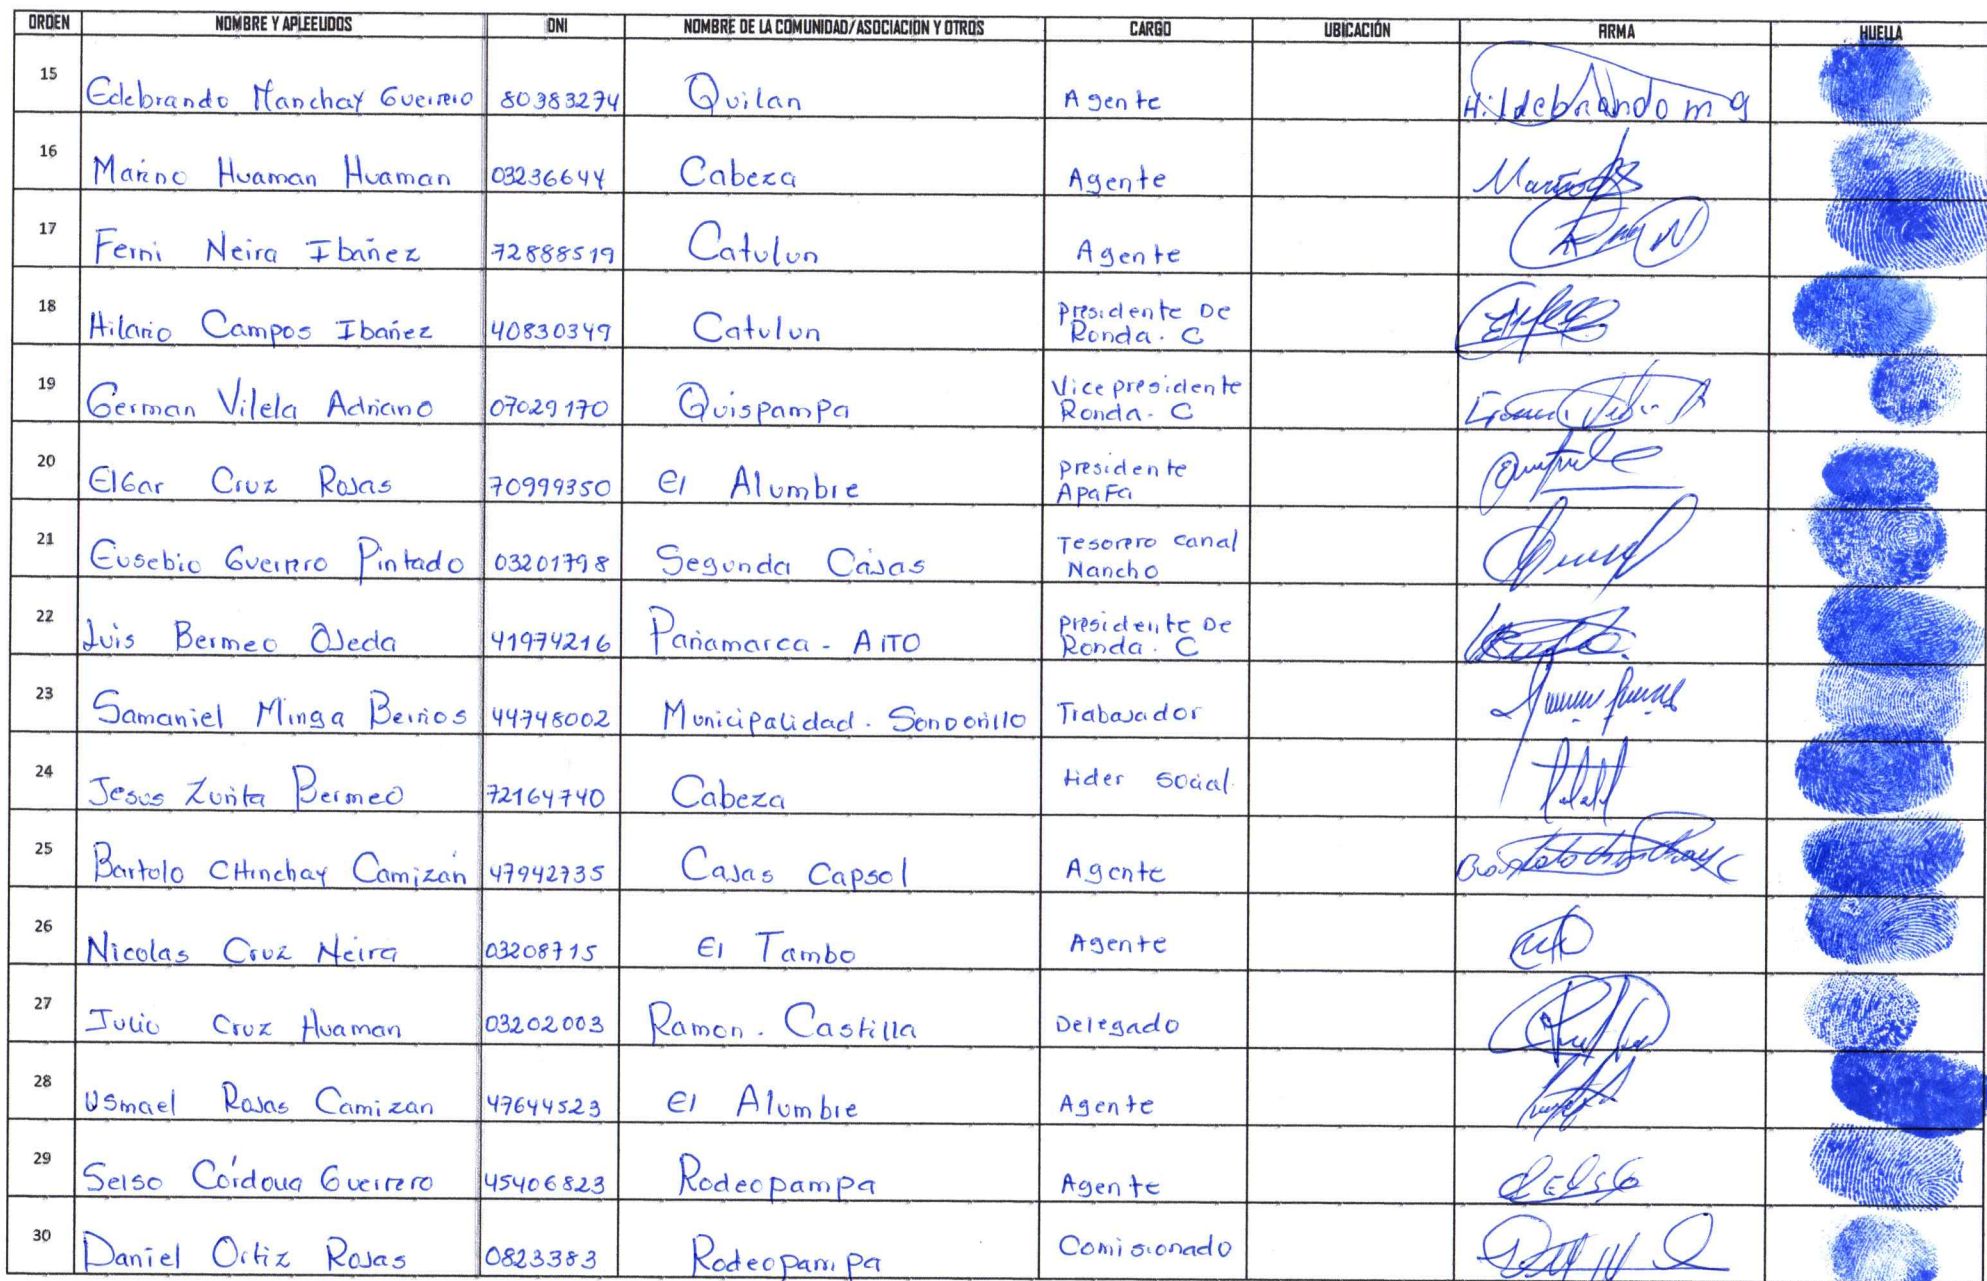 ORDEN NOMBRE Y APLEEUDOS DNI NOMBRE DE LA COMUNIDAD/ASOCIACION Y OTROS CARGO UBICACIÓN FIRMA HUELLA
15 Edebrando Manchay Guerrero 80383274 Quilan Agente Hildebrando m g
16 Marino Huaman Huaman 03236644 Cabeza Agente
17 Ferni Neira Ibañez 72888519 Catulun Agente
18 Hilario Campos Ibañez 40830349 Catulun Presidente De Ronda. C
19 German Vilela Adriano 07029170 Quispampa Vice presidente Ronda. C
20 ElGar Cruz Rojas 70999350 El Alumbre presidente ApaFa
21 Eusebio Guerrero Pintado 03201798 Segunda Cajas Tesorero canal Nancho
22 Luis Bermeo Ojeda 41974216 Pariamarca - Alto presidente De Ronda. C
23 Samaniel Minga Berrios 44748002 Municipalidad. Sondorillo Trabajador
24 Jesus Zurita Bermeo 72164740 Cabeza Lider social.
25 Bartolo CHinchay Camizán 47942735 Cajas Capsol Agente
26 Nicolas Cruz Neira 03208715 El Tambo Agente
27 Julio Cruz Huaman 03202003 Ramon. Castilla Delegado
28 Usmael Rojas Camizan 47644523 El Alumbre Agente
29 Selso Córdova Guerrero 45406823 Rodeopampa Agente CELSO
30 Daniel Ortiz Rojas 0823383 Rodeopampa Comisionado